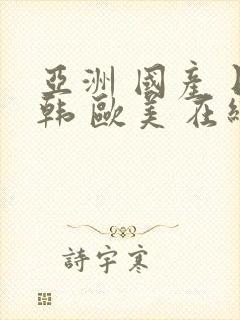 亞洲國產
韩欧美在
詩宇寒